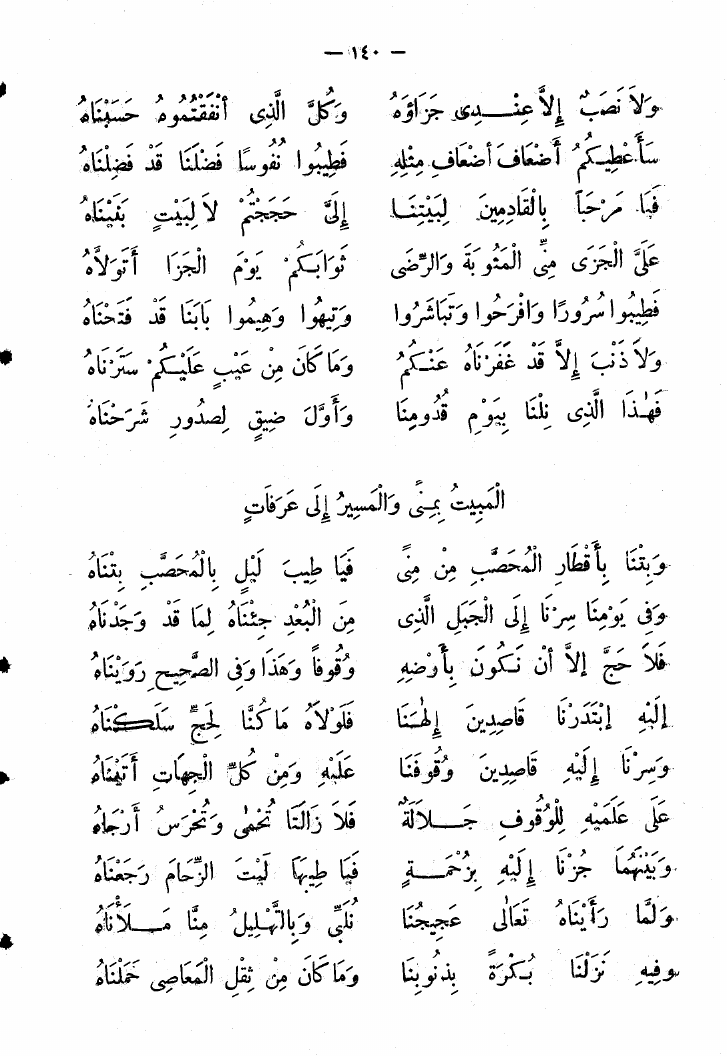 — ١٤٠ —
وَلاَ نَصَبٌ إِلاَّ عِنْـدِى جَزَاؤُهُ وَكُلَّ الَّذِى أَنْفَقْتُمُوهُ حَسَبْنَاهُ
سَأُعْطِيـكُمُ أَضْعَافَ أَضْعَافِ مِثْلِهِ فَطِيبُوا نُفُوسًا فَضْلُنَا قَدْ فَضَلْنَاهُ
فَيَا مَرْحَباً بِالْقَادِمِينَ لِبَيْتِنَـا إِلَىَّ حَجَجْتُمْ لاَ لِبَيْتٍ بَنَيْنَاهُ
عَلَىَّ الْجَزَى مِنِّى الْمَثُوبَةَ وَالرِّضَى ثَوَابَـكُمُ يَوْمَ الْجَزَا أَتَوَلاَّهُ
فَطِيبُوا سُرُورًا وَافْرَحُوا وَتَبَاشَرُوا وَتِيهُوا وَهِيمُوا بَابَنَا قَدْ فَتَحْنَاهُ
وَلاَ ذَنْبَ إِلاَّ قَدْ غَفَرْنَاهُ عَنْـكُمُ وَمَا كَانَ مِنْ عَيْبٍ عَلَيْـكُمْ سَتَرْنَاهُ
فَهٰـذَا الَّذِى نِلْنَا بِيَوْمِ قُدُومِنَا وَأَوَّلَ ضِيقٍ لِصُدُورِ شَرَحْنَاهُ
الْمَبِيتُ بِمِـنًى وَالْمَسِيرُ إِلَى عَرَفَاتٍ
وَبِتْنَا بِأَقْطَارِ الْمُحَصَّبِ مِنْ مِنًى فَيَا طِيبَ لَيْلٍ بِالْمُحَصَّبِ بِتْنَاهُ
وَفِى يَوْمِنَا سِرْنَا إِلَى الْجَبَلِ الَّذِى مِنَ الْبُعْدِ جِئْنَاهُ لِمَا قَدْ وَجَدْنَاهُ
فَلاَ حَجَّ إِلاَّ أَنْ نَـكُونَ بِأَرْضِهِ وُقُوفاً وَهَذَا وَفِى الصَّحِيحِ رَوَيْنَاهُ
إِلَيْهِ ابْتَدَرْنَا قَاصِدِينَ إِلٰهَـنَا فَلَوْلاَهُ مَا كُنَّا لِحَجٍّ سَلَـكْنَاهُ
وَسِرْنَا إِلَيْهِ قَاصِدِينَ وُقُوفَنَا عَلَيْهِ وَمِنْ كُلِّ الْجِهَاتِ أَتَيْنَاهُ
عَلَى عَلَمَيْهِ لِلْوُقُوفِ جَـلاَلَةٌ فَلاَ زَالَتَا تُحْمَى وَتُحْرَسُ أَرْجَاهُ
وَبَيْنَهُمَا جُزْنَا إِلَيْهِ بِزُحْمَـةٍ فَيَا طِيبَهَا لَيْتَ الزِّحَامَ رَجَعْنَاهُ
وَلَمَّا رَأَيْنَاهُ تَعَالَى عَجِيجُنَا نُلَبِّى وَبِالتَّهْلِيلُ مِنَّا مَـلأْنَاهُ
وَفِيهِ نَزَلْنَا بُـكْرَةً بِذُنُوبِنَا وَمَا كَانَ مِنْ ثِقْلِ الْمَعَاصِى حَمَلْنَاهُ